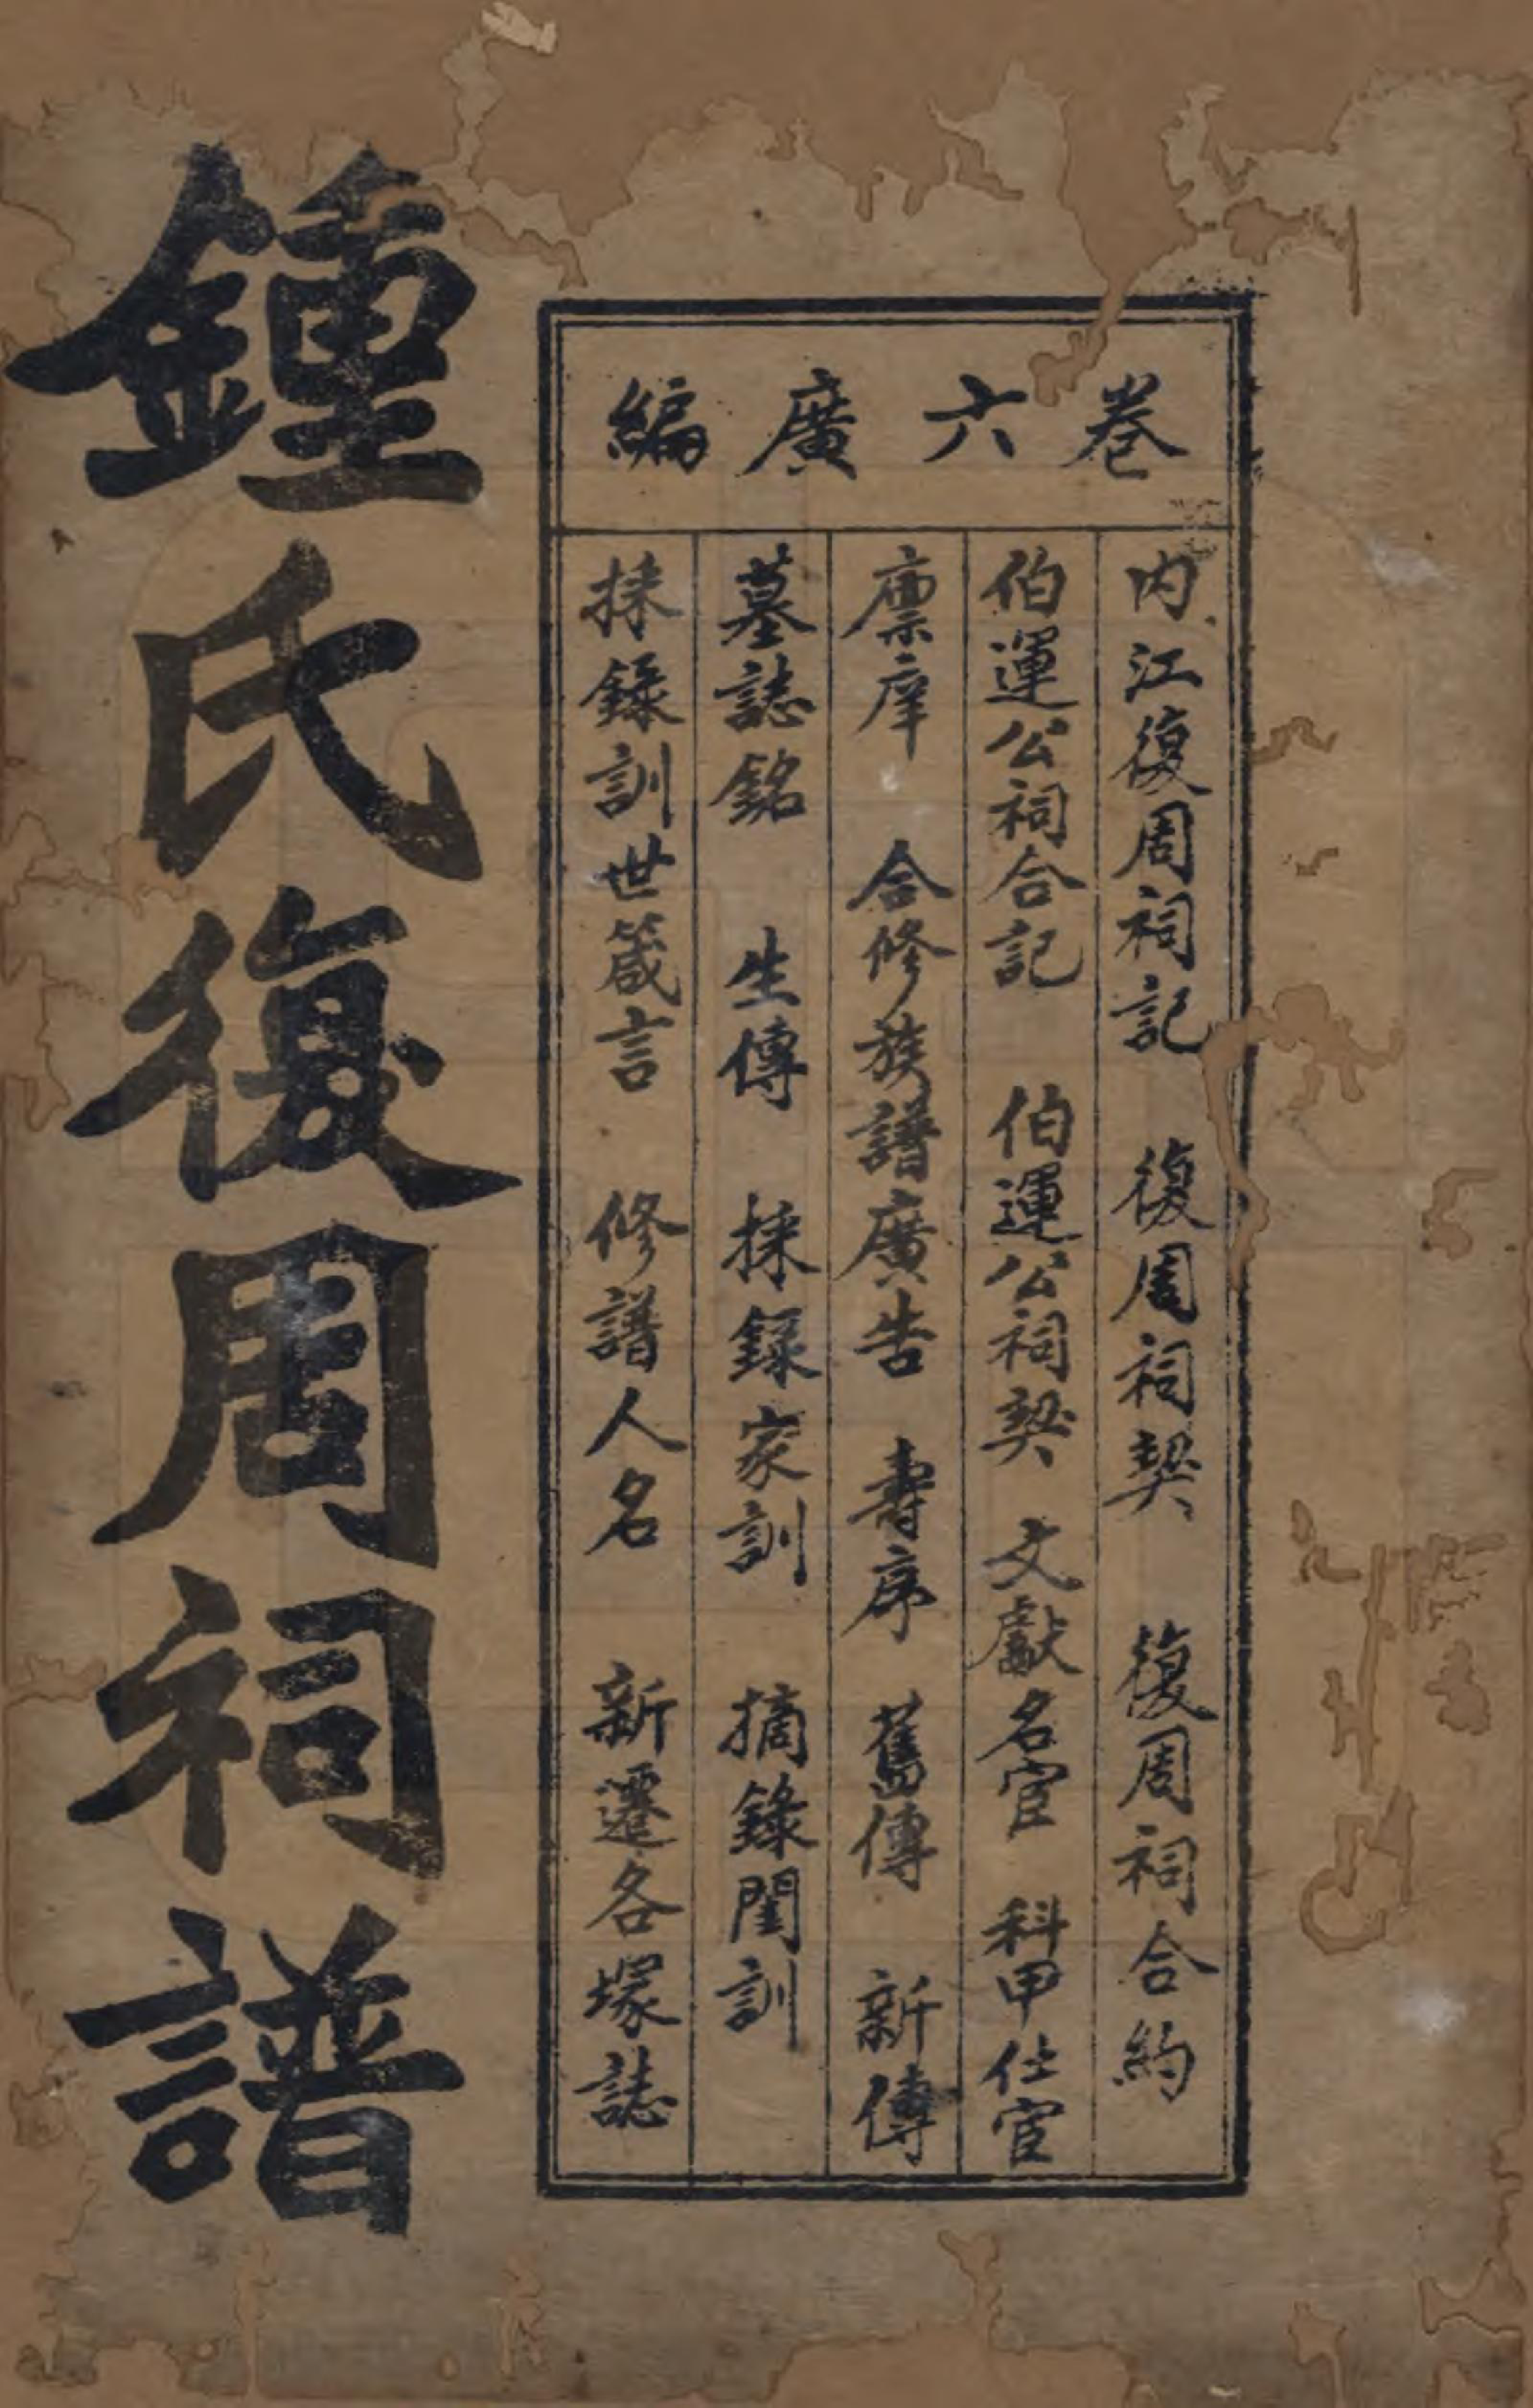 卷六廣編
內江復周祠記 復周祠契 復周祠合約
伯運公祠合記 伯運公祠契 文獻名宦 科甲仕宦
廪庠 合修族譜廣告 壽序 舊傳 新傳
墓誌銘 生傳 採錄家訓 摘錄閨訓
採錄訓世箴言 修譜人名 新遷各塚誌
鍾氏復周祠譜